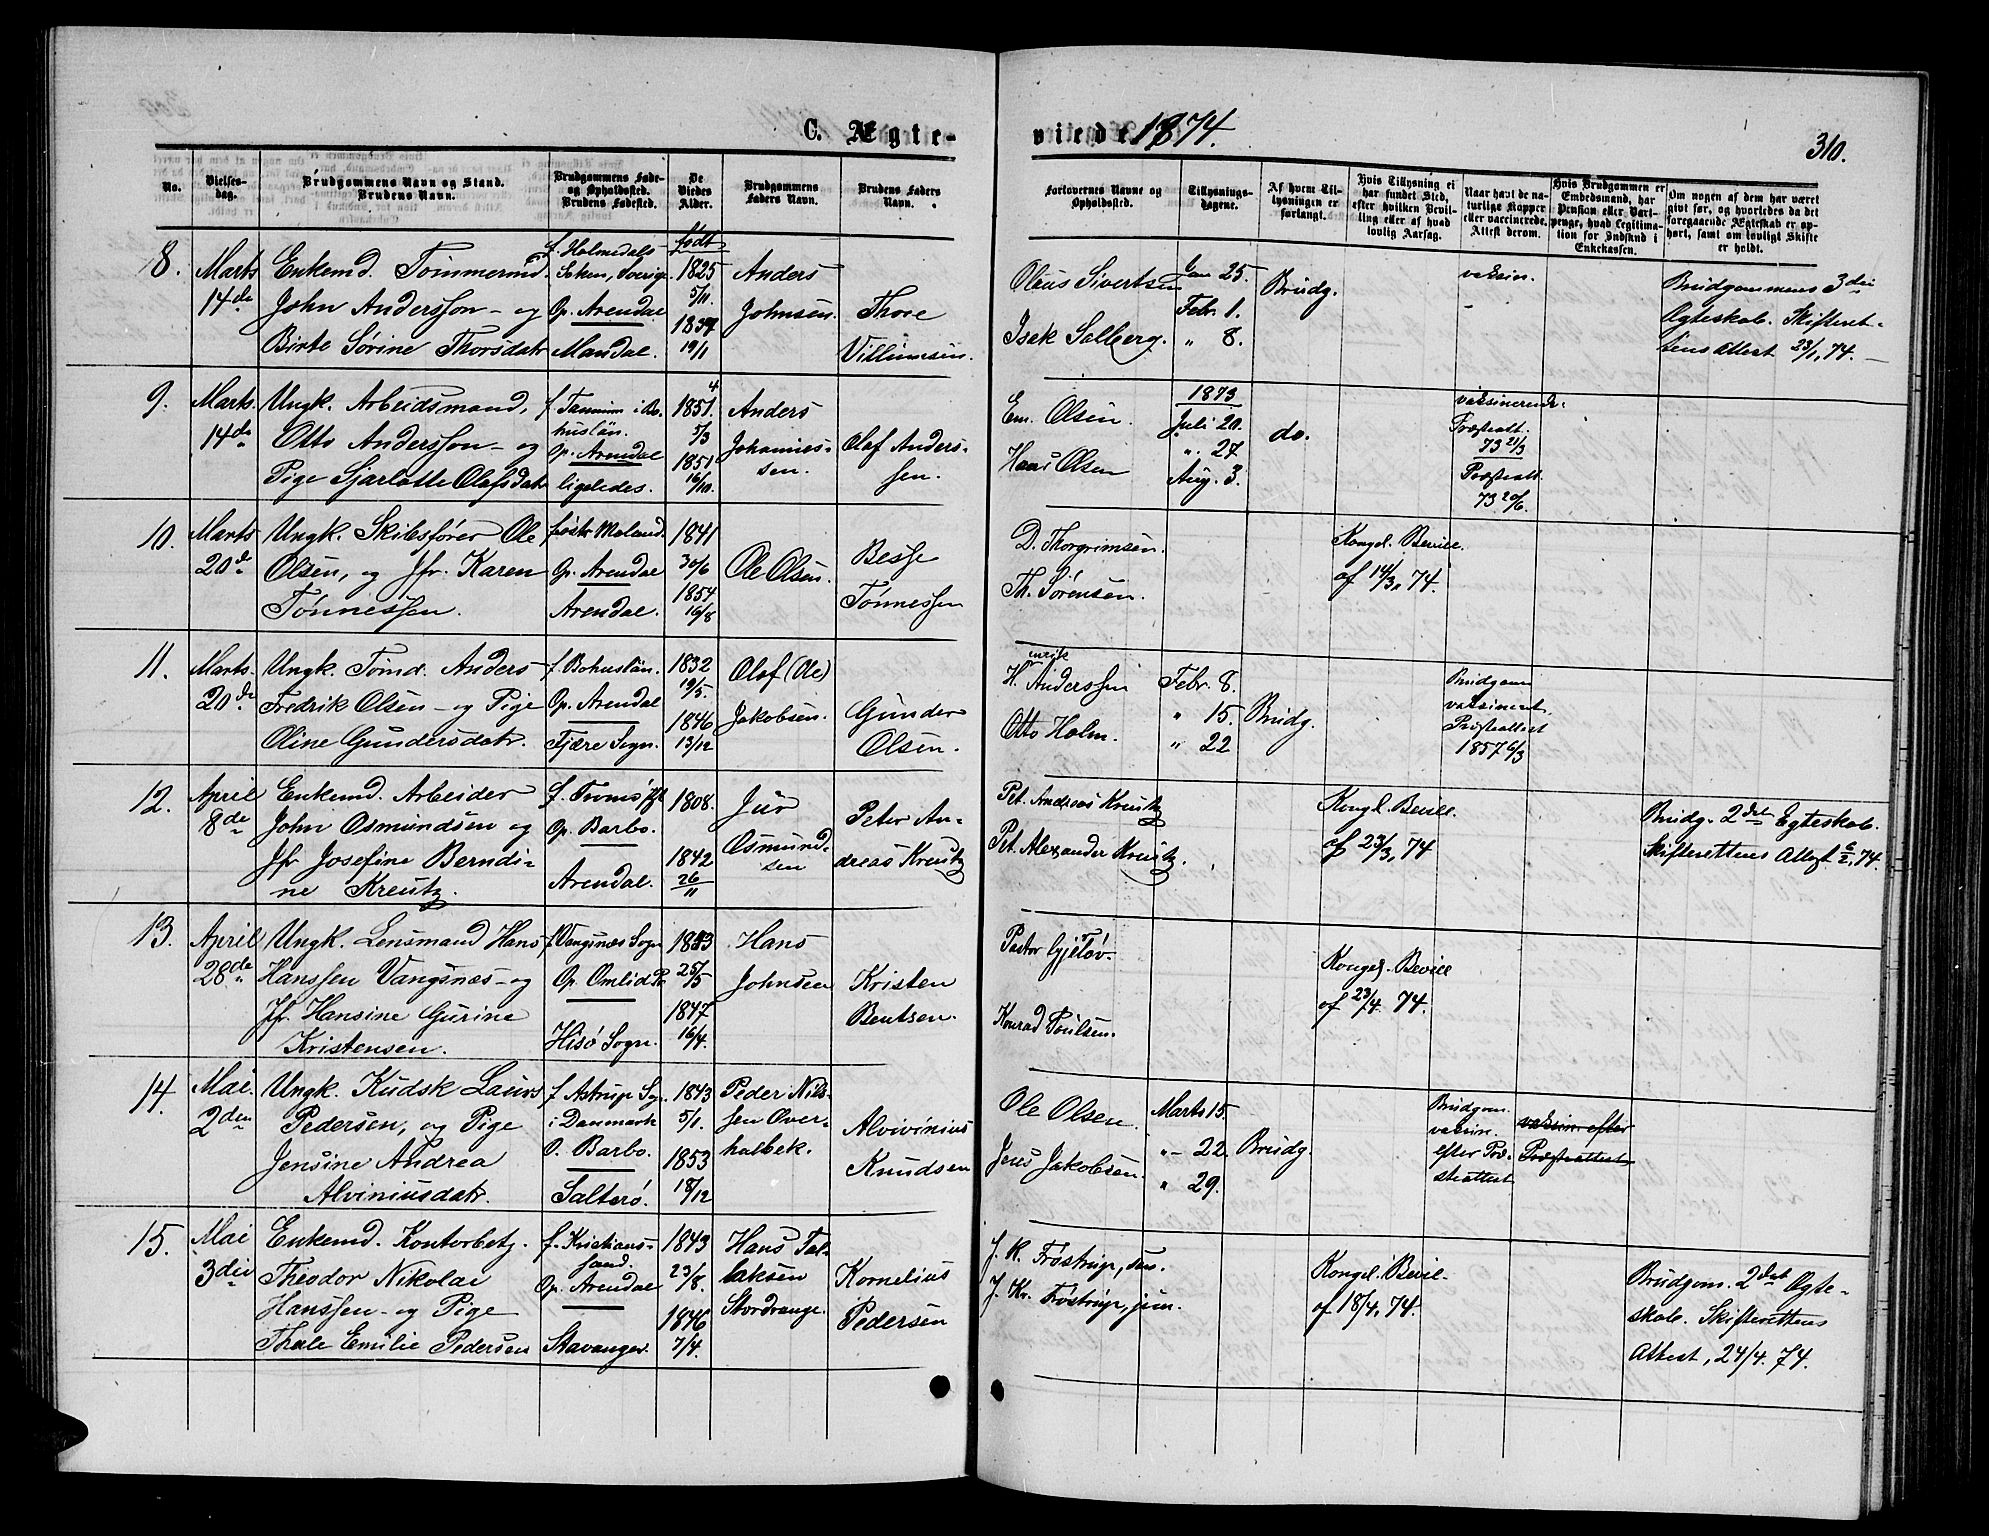 C. Ægte-
viede 1874.
310.
No.
Vielses-
dag.
Brudgommens Navn og Stand.
Brudens Navn.
Brudgommens Føde-
og Opholdssted.
Brudens Fødested.
De
Viedes
Alder.
Brudgommens
Faders Navn.
Brudens Faders
Navn.
Forlovernes Navne og
Opholdssted.
Tillysnings-
dagene.
Af hvem Til-
lysningen er
forlangt.
Hvis Tillysning ei
har fundet Sted,
efter hvilken Bevil-
ling eller af hvad
lovlig Aarsag.
Naar havt de na-
turlige Kopper
eller vaccinerede.
Attest derom.
Hvis Brudgommen er
Embedsmand, har
Pension eller Vart-
penge, hvad Legitima-
tion for Indskud i
Enkekassen.
Om nogen af dem har været
givt før, og hvorledes da det
foregaaende Ægteskab er op-
hørt, samt om lovligt Skifte
er holdt.
8.
Marts
14de
Enkemd. Tømmermd.
John Anderssøn - og
Birte Sørine Thorsdatr
f. Holmedals
Soken, Sverige
Op. Arendal
Mandal.
født
1825
5/11.
1837
19/1
Anders
Johnsen.
Thore
Villumsen.
Oluus Sivertsen
Isak Solberg.
Jan 25.
Febr. 1.
" 8.
Brudg.
vaksin.
-
Brudgommens 3die
Egteskab. Skifteret-
tens Attest 23/1, 74.
9.
Marts.
14de
Ungk. Arbeidsmand,
Otto Anderssøn - og
Pige Sjarlotte Olafsdatr
f Tanum i Bo-
huslän.
Op. Arendal
ligeledes.
1851.
5/3
1851
16/10.
Anders
Johannes-
sen.
Olaf Anders-
sen.
Em. Olsen.
Hans Olsen
1873
Juli 20.
" 27
Aug. 3.
do.
vaksinerede.
Præsteatt.
73 21/3
Præsteatt.
73 20/6.
10.
Marts
20de
Ungk. Skibsfører Ole
Olsen, og Jfr. Karen
Tønnessen.
f. østr Moland.
Op. Arendal
Arendal.
1841
30/6
1854
16/8
Ole Olsen.
Besse
Tønnessen
D. Thorgrimsen.
Th. Sørensen.
Kongel. Bevill.
af 14/3, 74.
11.
Marts.
20de
Ungk. Tømd. Anders
Fredrik Olsen - og Pige
Oline Gundersdatr.
f. Bohuslän.
Op. Arendal
Fjære Sogn.
1832
19/5.
1846
13/12
Olof (Ole)
Jakobsen.
Gunder
Olsen.
Henrik
Anderssen
Otto Holm.
Febr. 8.
" 15.
" 22
Brudg.
Brudgom
vaksineret
Præsteattest
1857 6/3
12.
April
8de
Enkemd. Arbeider
John Osmundsen og
Jfr Josefine Berndi-
ne Kreutz.
f. Tromø Pgt
Op. Barbo.
Arendal.
1808.
1842
26/11
Jur
Osmund-
sen
Peter An-
dreas Kreutz
Pet. Andreas Kreutz
Pet. Alexander Kreutz.
Kongl. Bevill.
af 23/3, 74
Brudg. 2det Egteskab.
Skifterettens Attest 6/2, 74.
13.
April
28de
Ungk. Lensmand Hans
Hanssen Vangsnæs - og
Jfr. Hansine Gurine
Kristensen.
f. Vangsnæs Sogn
Op. Omlid Pr.
Hisø Sogn.
1843
25/5
1847
16/4.
Hans
Johnsen
Kristen
Bentsen.
Pastor Gjeløv.
Konrad Poulsen.
Kongel. Bevill
af 23/4. 74.
14.
Mai.
2den
Ungk. Kudsk Laurs
Pedersen, og Pige
Jensine Andrea
Alviniusdatr.
f Astrup Sg.
i Danmark
O. Barbo.
Salterø.
1843
5/1.
1853
18/12
Peder Nils-
sen Over-
halbek.
Alvivinius
Knudsen
Ole Olsen.
Jens Jakobsen.
Marts 15.
"- 22.
" 29.
Brudg.
Brudgom.
vaksin.
efter Præ-
steattest
vaksin. efter
Præsteattest
15.
Mai
3die
Enkemd. Kontorbetj.
Theodor Nikolai
Hanssen - og Pige
Thale Emilie Pedersen
f. Kristians-
sand.
Op. Arendal
Stavanger.
1843
23/8.
1846
7/4.
Hans Tal-
laksen
Stordrange.
Kornelius
Pedersen
J. K. Frøstrup, sen.
J. Kr. Frøstrup, jun.
Kongel. Bevil-
af 18/4, 74.
Brudgom. 2det Egte-
skab. Skifterettens
Attest, 24/4. 74.